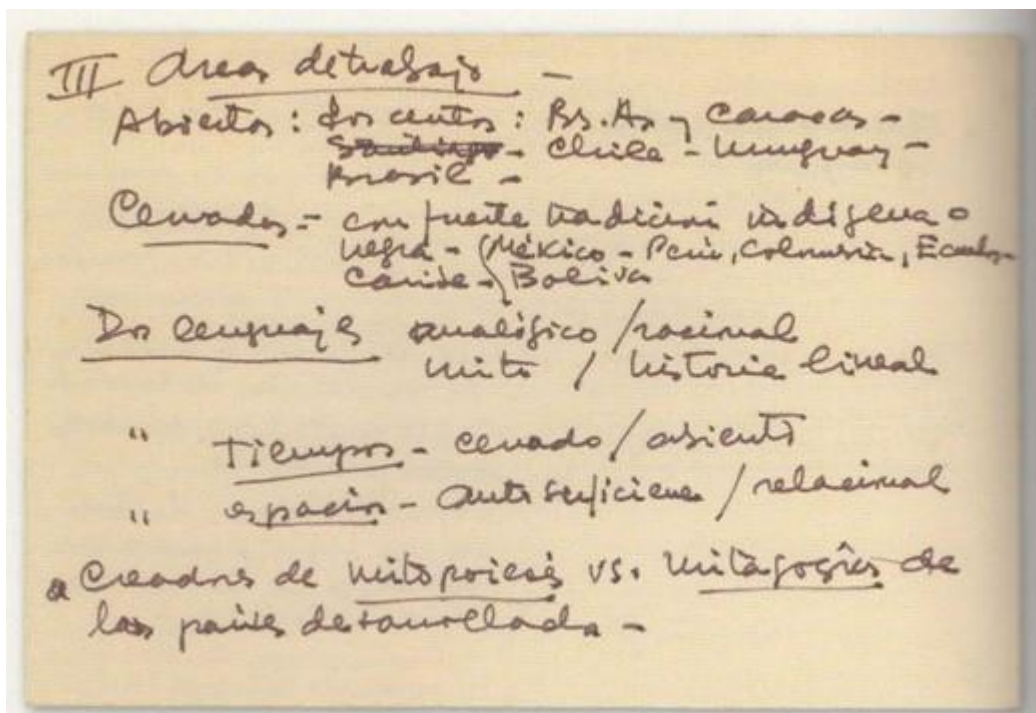 III Areas de trabajo -
Abiertas: dos centros: Bs. As y Caracas -
Santiago - Chile - Uruguay -
Brasil -
Cerradas - con fuerte tradición indígena o
negra - México - Perú, Colombia, Ecuador
Caribe - Bolivia
Dos lenguajes analógico / racional
mito / historia lineal
" Tiempos - cerrado / abierto
" espacios - autosuficiente / relacional
Creadores de mitopoiesis vs. mitagogías de
los países desarrollados -